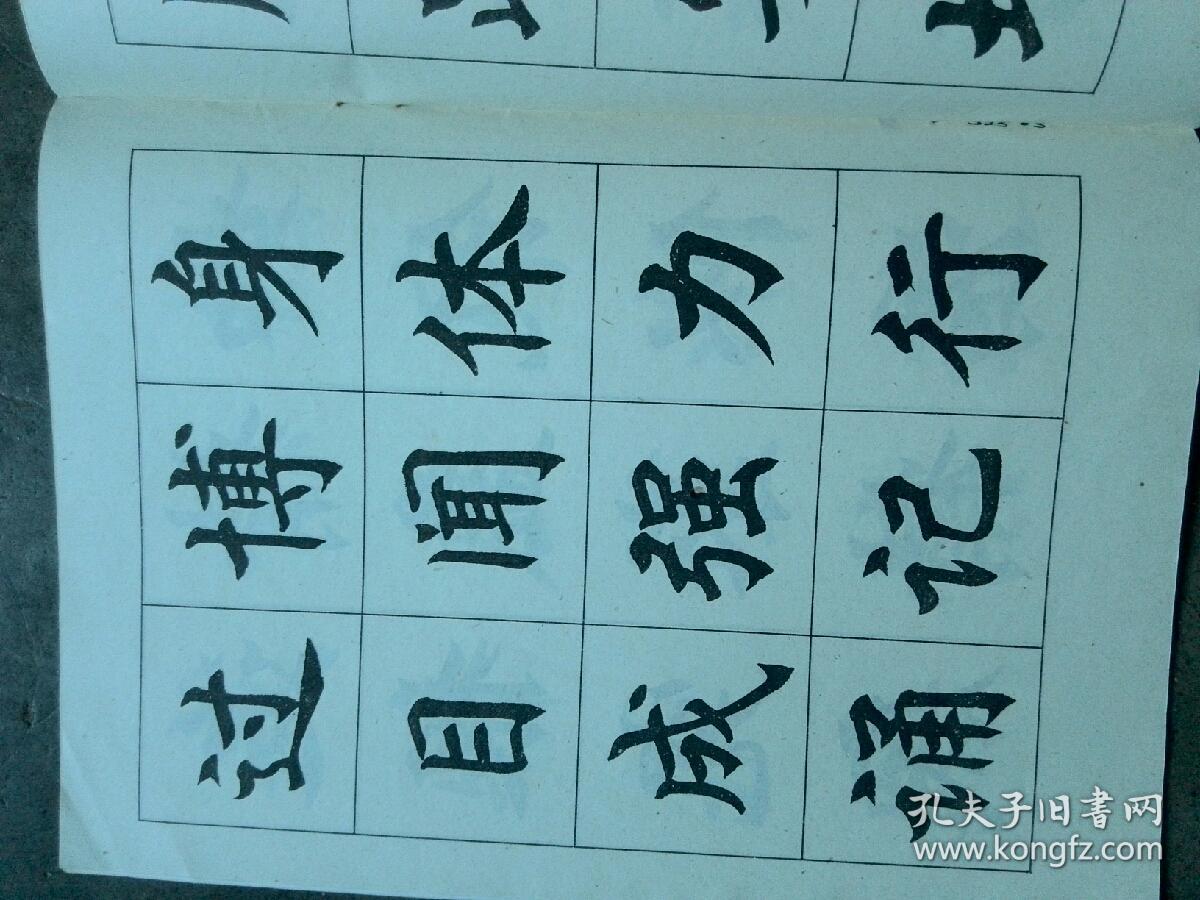 身体力行
博闻强记
过目成诵
孔夫子旧书网
www.kongfz.com